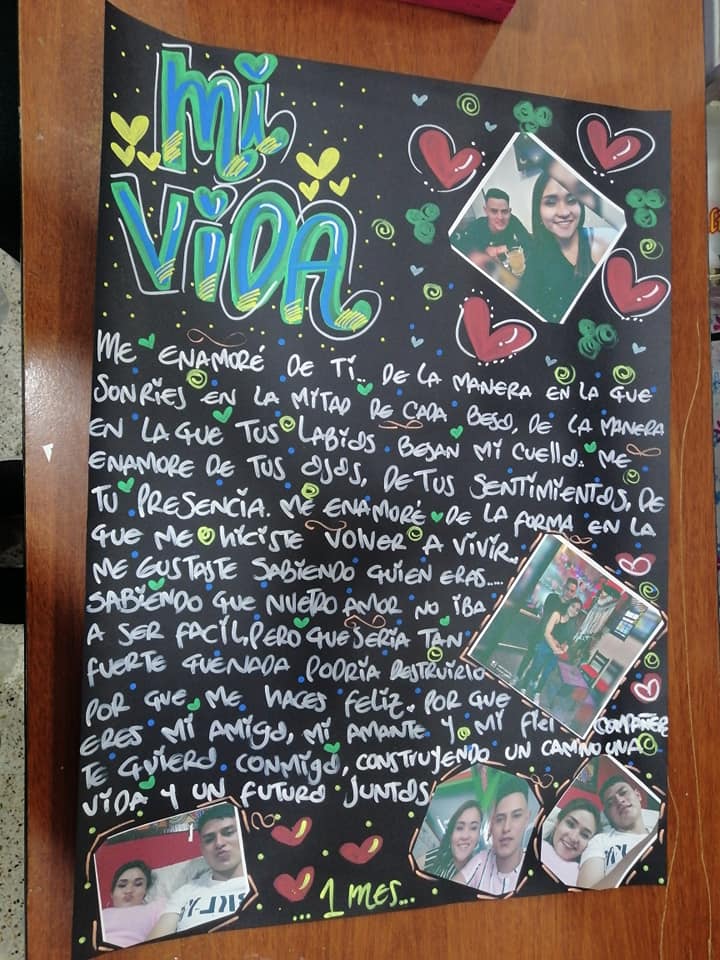 Mi
ViDA
ME ENAMORÉ DE Ti.. DE LA MANERA EN LA QUE
SONRIES EN LA MITAD DE CADA BESO, DE LA MANERA
EN LA QUE TUS LABIOS BESAN MI CUELLO. ME
ENAMORE DE TUS OJOS, DE TUS SENTIMIENTOS, DE
TU PRESENCIA. ME ENAMORÉ DE LA FORMA EN LA
QUE ME HICISTE VOLVER A VIVIR.
ME GUSTASTE SABIENDO QUIEN ERAS.....
SABIENDO QUE NUETRO AMOR NO IBA
A SER FACIL, PERO QUE SERIA TAN
FUERTE QUE NADA PODRIA DESTRUIRLO
POR QUE ME HACES FELIZ. POR QUE
ERES MI AMIGO, MI AMANTE Y MI FIEL COMPAÑER
TE QUIERO CONMIGO, CONSTRUYENDO UN CAMINO UNA
VIDA Y UN FUTURO JUNTOS
..1 MES...